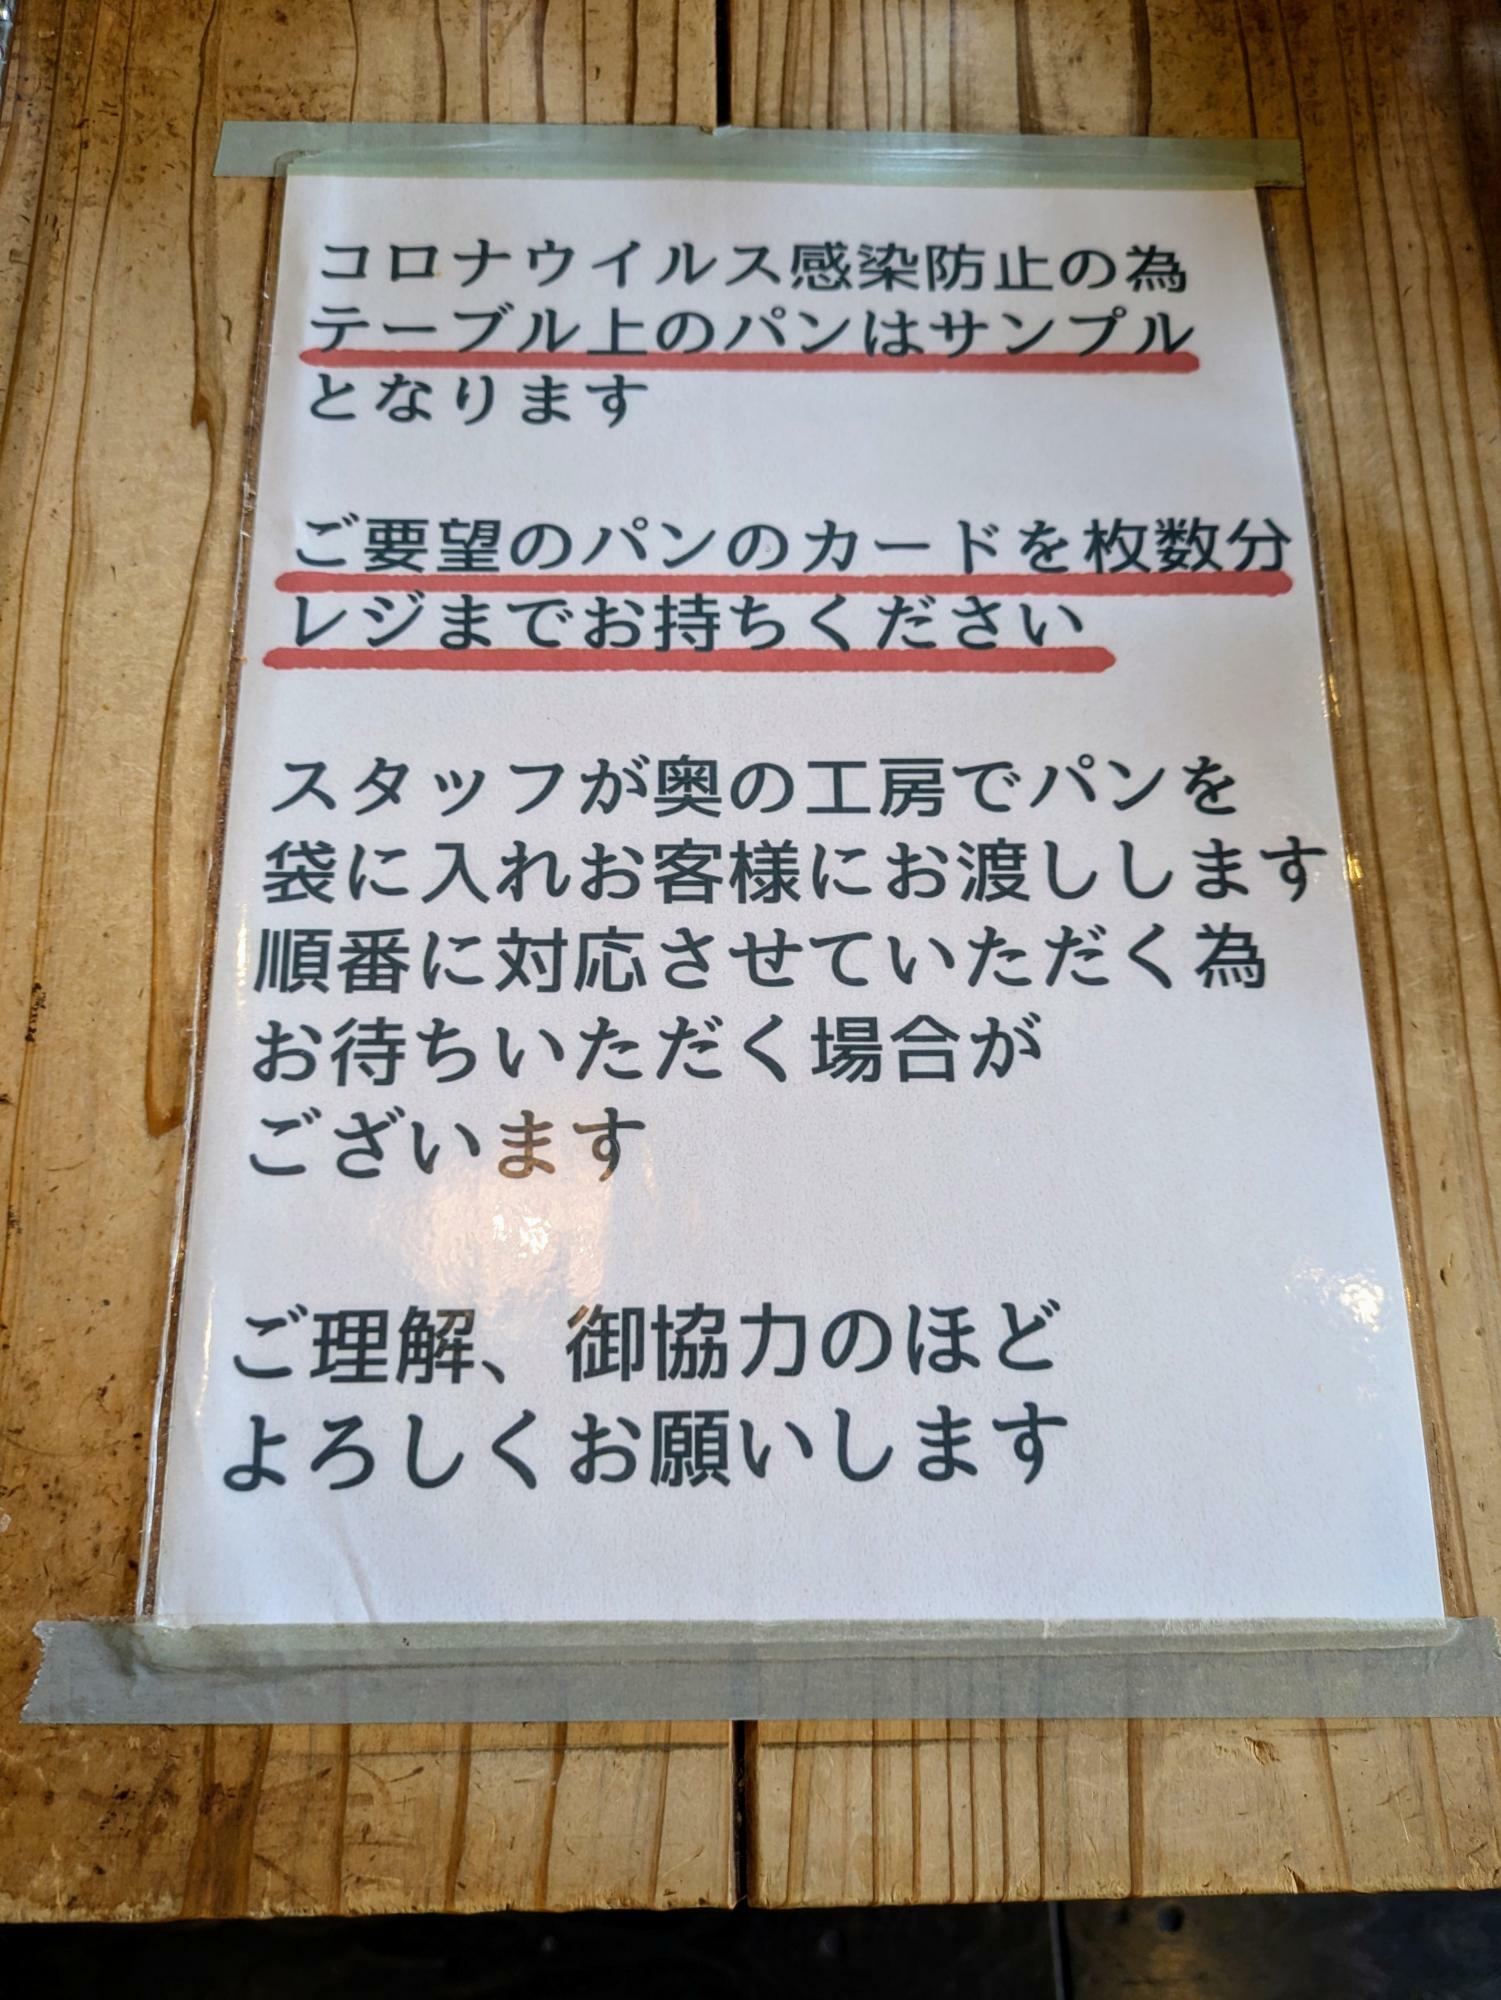 コロナウイルス感染防止の為
テーブル上のパンはサンプル
となります
ご要望のパンのカードを枚数分
レジまでお持ちください
スタッフが奥の工房でパンを
袋に入れお客様にお渡しします
順番に対応させていただく為
お待ちいただく場合が
ございます
ご理解、御協力のほど
よろしくお願いします